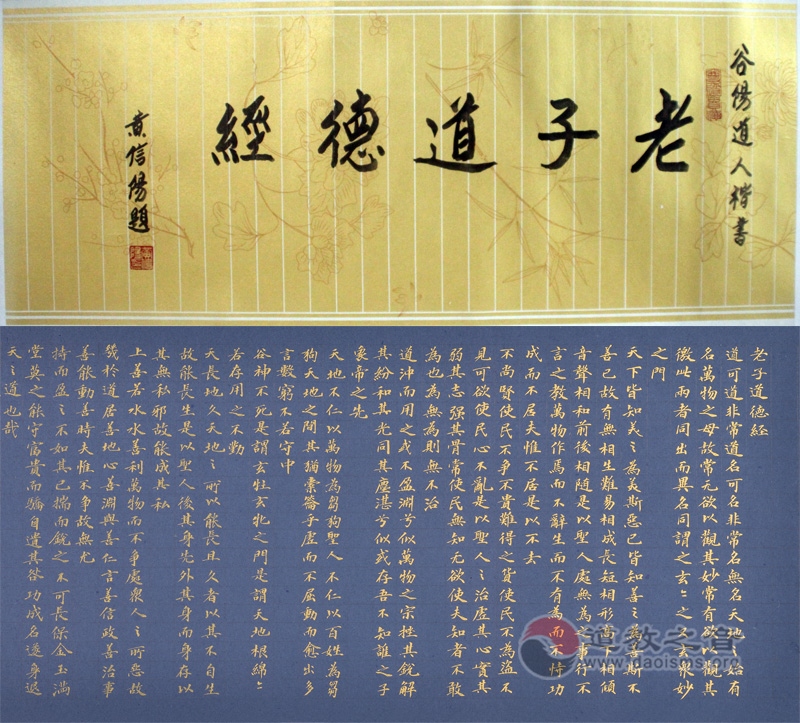 谷陽道人楷書
老子道德經
黄信陽題
老子道德經
道可道非常道名可名非常名無名天地之始有
名萬物之母故常无欲以觀其妙常有欲以觀其
徼此兩者同出而異名同謂之玄〻之又玄眾妙
之門
天下皆知美之為美斯惡已皆知善之為善斯不
善已故有無相生難易相成長短相形高下相傾
音聲相和前後相隨是以聖人處無為之事行不
言之教萬物作焉而不辭生而不有為而不恃功
成而不居夫惟不居是以不去
不尚賢使民不爭不貴難得之貨使民不為盜不
見可欲使民心不亂是以聖人之治虛其心實其
弱其志強其骨常使民無知无欲使夫知者不敢
為也為無為則無不治
道沖而用之或不盈淵兮似萬物之宗挫其銳解
其紛和其光同其塵湛兮似或存吾不知誰之子
象帝之先
天地不仁以萬物為芻狗聖人不仁以百姓為芻
狗天地之間其猶橐籥乎虛而不屈動而愈出多
言數窮不若守中
谷神不死是謂玄牡玄牝之門是謂天地根綿〻
若存用之不勤
天長地久天地之所以能長且久者以其不自生
故能長生是以聖人後其身先外其身而身存以
其無私邪故能成其私
上善若水水善利萬物而不爭處眾人之所惡故
幾於道居善地心善淵與善仁言善信政善治事
善能動善時夫惟不爭故無尤
持而盈之不如其已揣而銳之不可長保金玉滿
堂莫之能守富貴而驕自遺其咎功成名遂身退
天之道也哉
道教之音
www.daoisms.org